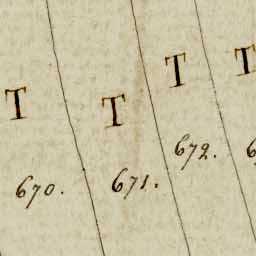 T
T
T
T
670.
671.
672.